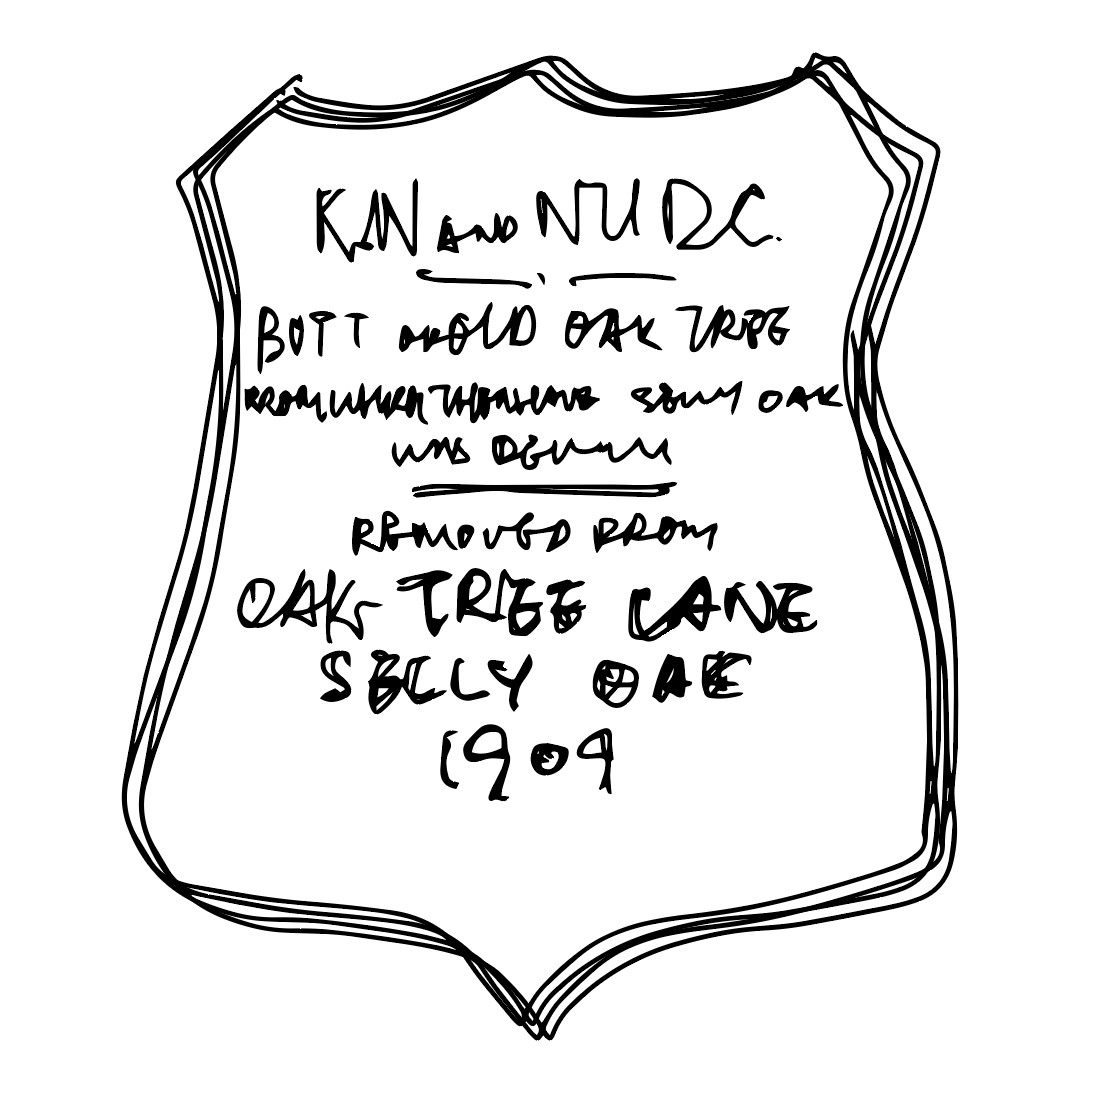 KN AND NU DC.
BUTT OF OLD OAK TREE
FROM WHICH THE NAME SELLY OAK
WAS DERIVED
REMOVED FROM
OAK TREE LANE
SELLY OAK
1909